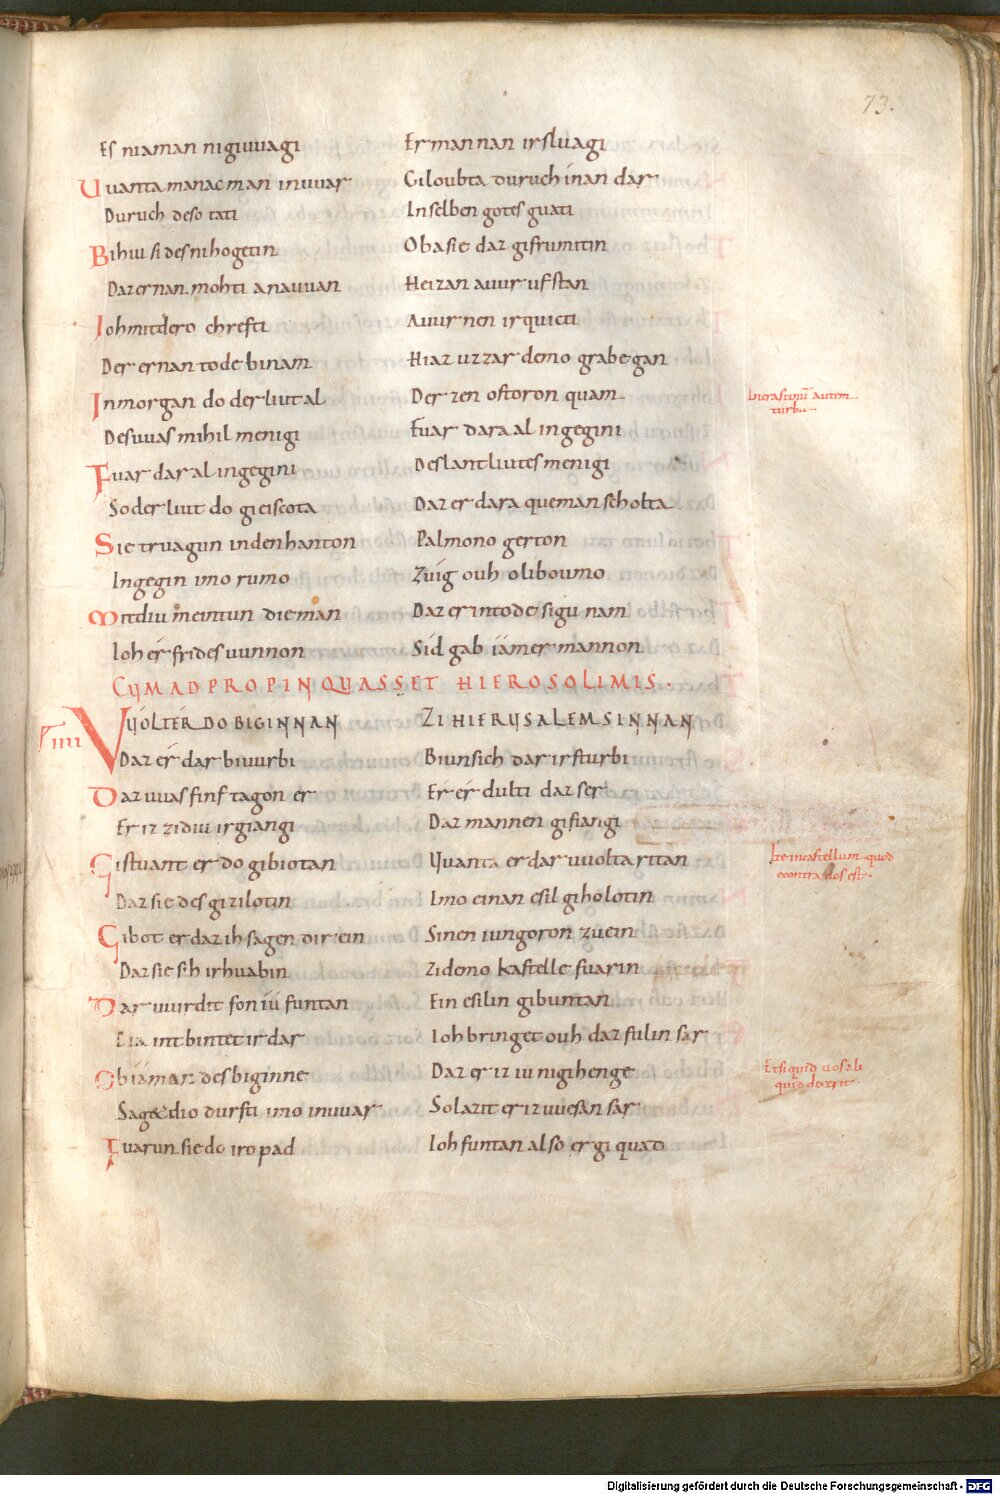 73.
Es niaman nigiuuagi Er mannan irsluagi
Uuanta manac man inuuar Giloubta duruch inan dar
Duruch deso tati In selben gotes guati
Bihiu si des nihogetin Oba sie daz gifrumitin
Daz er nan mohti anauuan Heizan auur ufstan
Ioh mit dero chrefti Auur nen irquicti
Der er nan tode binam Hiaz uzzar demo grabe gan
In morgan do der liut al Der zen ostoron quam
Des uuas mihil menigi Fuar dara al ingegini
Fuar dar al ingegini Des lantliutes menigi
So der liut do gieiscota Daz er dara queman scholta
Sie truagun in den hanton Palmono gerton
Ingegin imo rumo Zuig ouh oliboumo
Mit diu meintun die man Daz er in tode sigu nam
Ioh er frides uunnon Sid gab iamer mannon
CUM ADPROPINQUASSET HIEROSOLIMIS.
IIII
VUOLTER DO BIGINNAN ZI HIERUSALEM SINNAN
Daz er dar biuurbi Bi unsich dar irsturbi
Daz uuas finf tagon er Er er dulti daz ser
Er iz zidiu irgiangi Daz man nen gifiangi
Gistuant er do gibiotan Uuanta er dar uuolta ritan
Daz sie des gizilotin Imo einan esil giholotin
Gibot er daz ih sagen dir ein Sinen iungoron zuein
Daz sie sih irhuabin Zi demo kastelle fuarin
Dar uuirdit fon iu funtan Ein esilin gibuntan
Dia intbintet ir dar Ioh bringet ouh daz fulin sar
Ob iaman des biginne Daz er iz iu nigihenge
Saget dio durfti imo inuuar So lazit er iz uuesan sar
Fuarun sie do iro pad Ioh funtan also er giquad
In crastinum autem
turba
Ite in castellum quod
contra uos est.
Et si quis uobis
quid dixerit
Digitalisierung gefördert durch die Deutsche Forschungsgemeinschaft - DFG